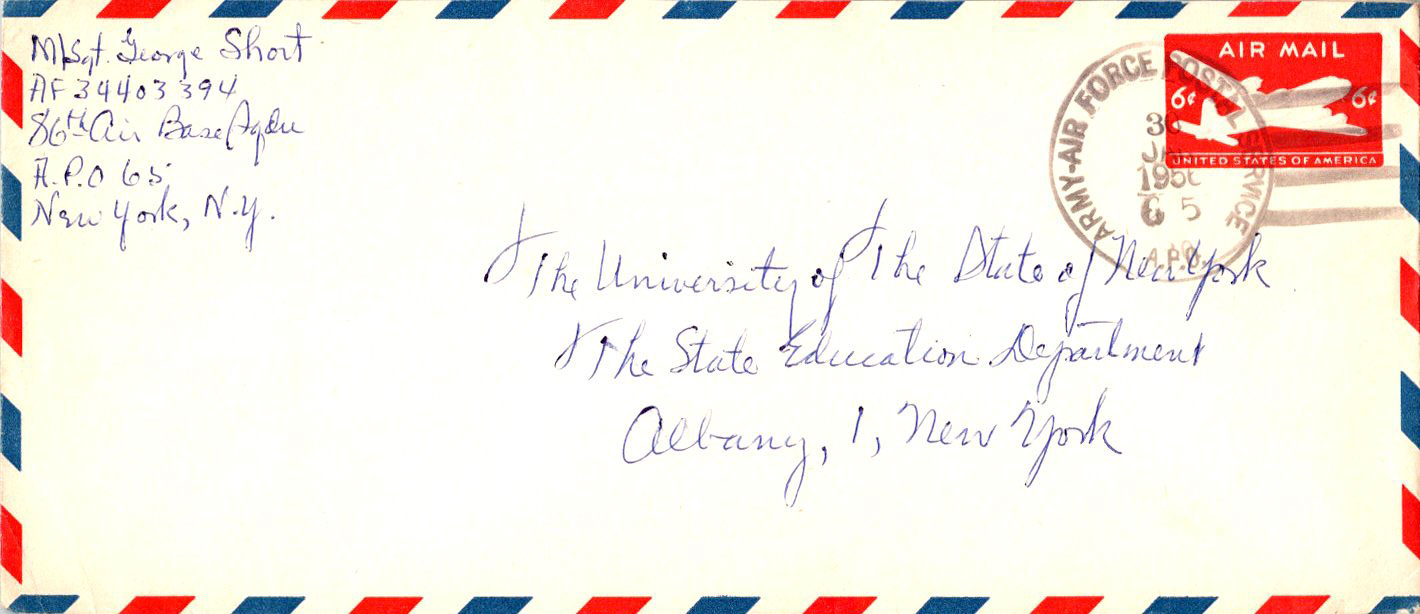 M/Sgt. George Short
AF 34403394
86th Air Base Gqdn
A.P.O 65
New York, N.Y.
ARMY-AIR FORCE POSTAL SERVICE
30
JAN
1956
5
A.P.O.
AIR MAIL
6¢ 6¢
UNITED STATES OF AMERICA
The University of The State of New York
The State Education Department
Albany, 1, New York